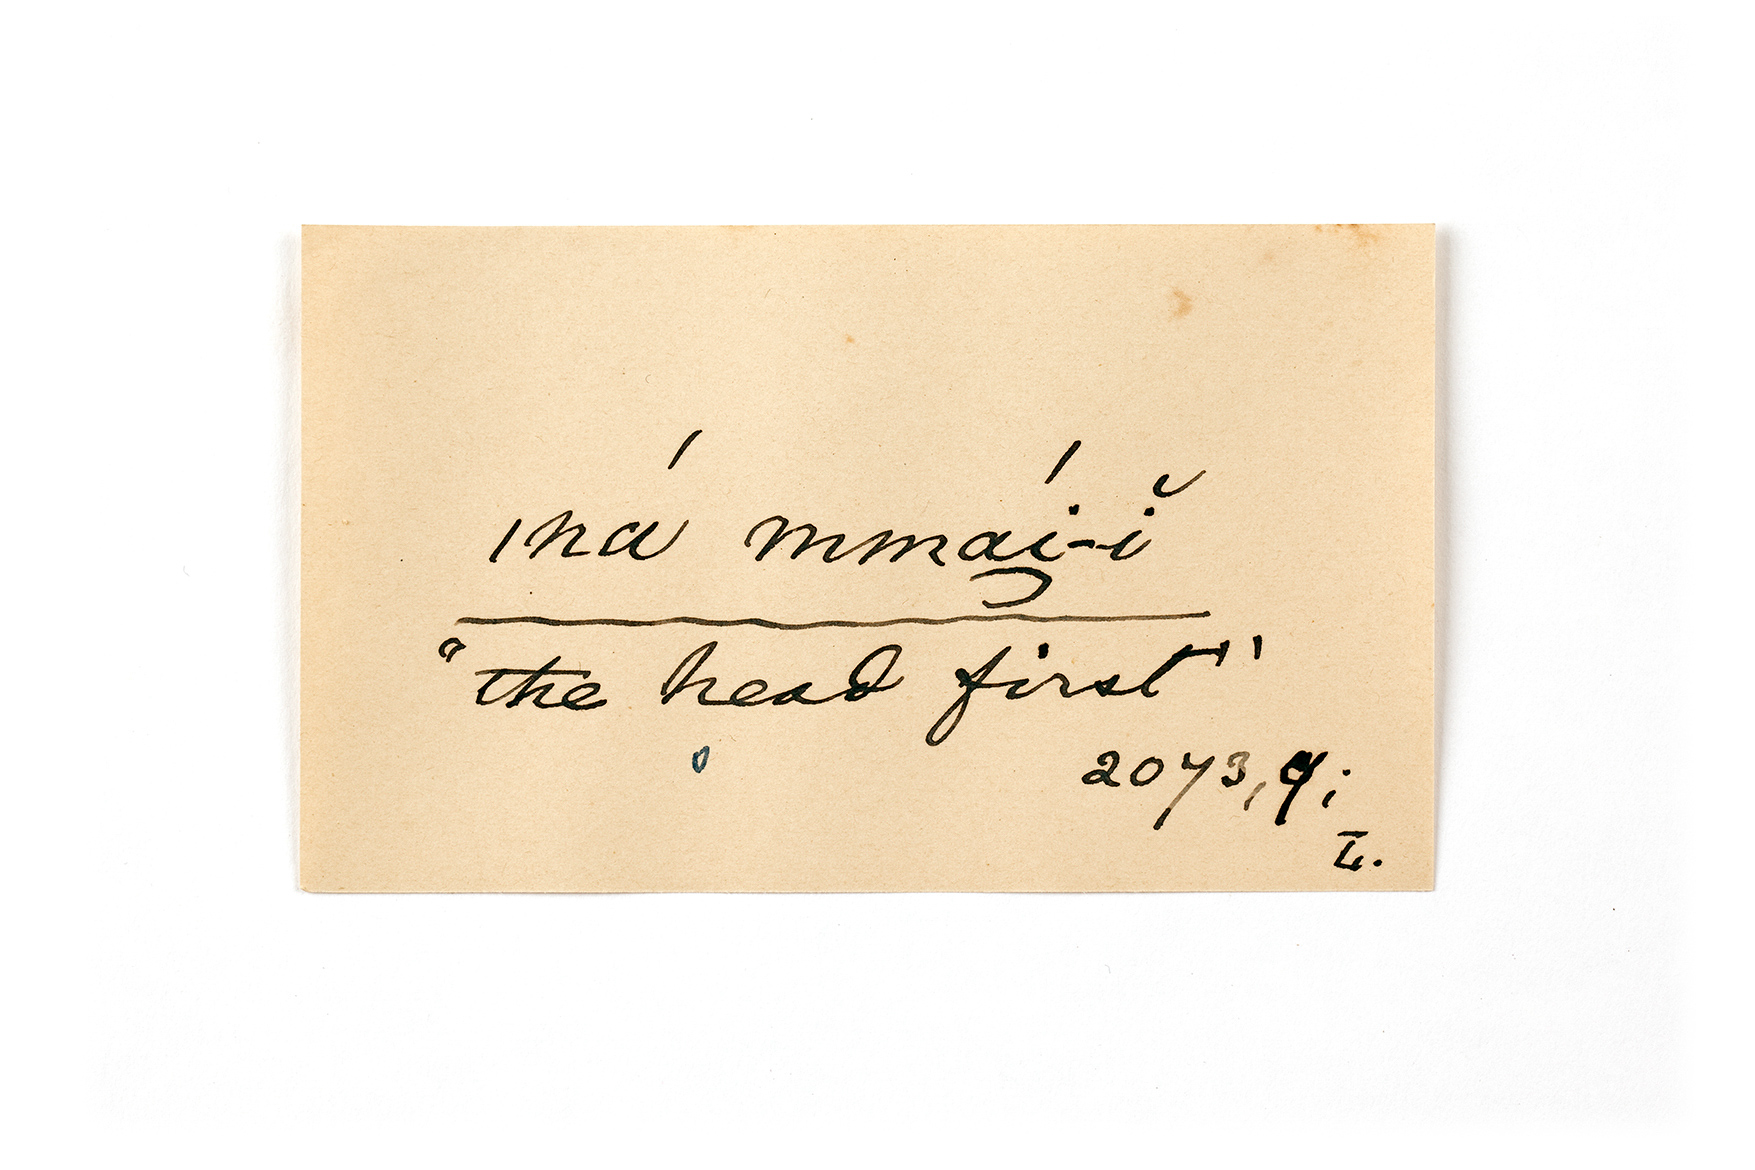 ıná mmá̯i-ĭ
"the head first"
2073, 9;
L.